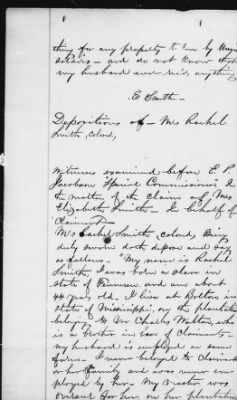 thing for any property to her by
and do not know that
my husband ever did anything
E Smith —
Depositions of — Mrs Rachel
Smith, colord,
Witness examined before E. P.
Jacobson Special Commissioner in
the matter of the claim of Mrs
Elizabeth Smith — In behalf of
Claimant —
Mrs Rachel Smith, colord, being
duly sworn doth depose and say
as follows. "My name is Rachel
Smith, I was born a slave in
State of and am about
44 years old. I live at Bolton in
State of Mississippi, on the plantation
belong to Mr Charles Watson, who
is a brother in law of Claimant —
my husband is employed on same
farm. I never belonged to Claimant
or her family and was never em-
ployed by her. My master was
overseer for her on her plantation